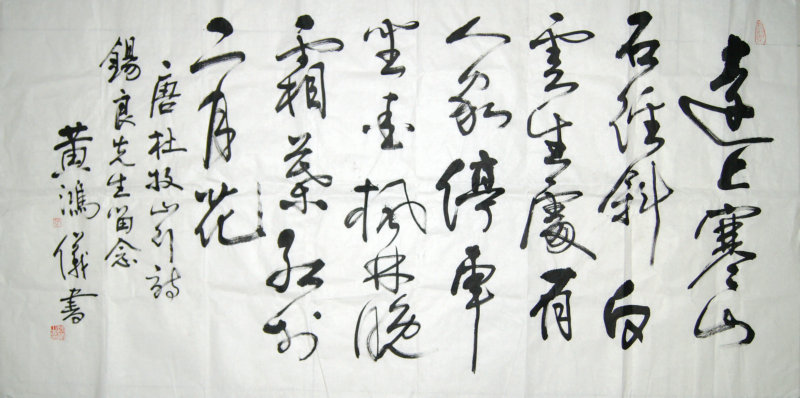 遠上寒山
石徑斜白
雲生處有
人家停車
坐愛楓林晚
霜葉紅於
二月花
唐杜牧山行詩
錫良先生留念
黃鴻儀書